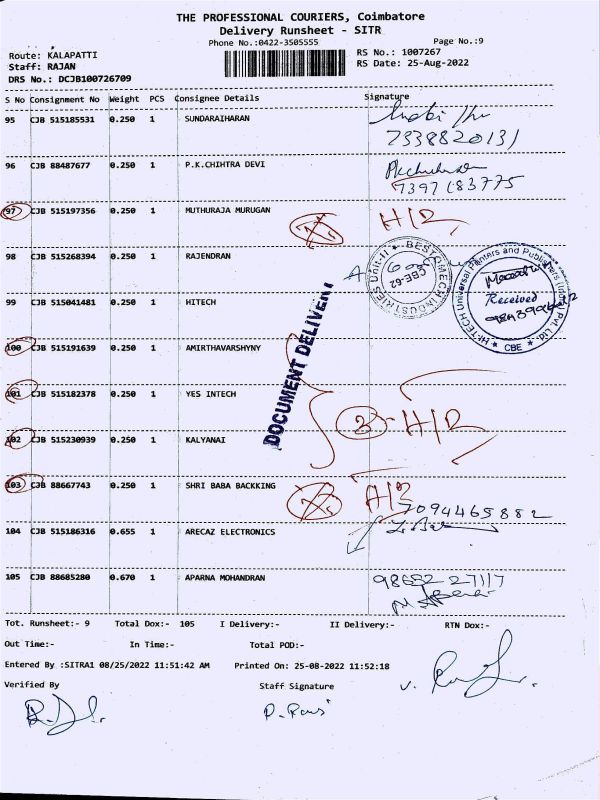 THE PROFESSIONAL COURIERS, Coimbatore
Delivery Runsheet - SITR
Phone No.:0422-3505555
Page No.:9
Route: KALAPATTI
RS No.: 1007267
Staff: RAJAN
RS Date: 25-Aug-2022
DRS No.: DCJB100726709
S No Consignment No Weight PCS Consignee Details Signature
95 CJB 515185531 0.250 1 SUNDARAIHARAN
7338820131
96 CJB 88487677 0.250 1 P.K.CHIHTRA DEVI
7397183775
97 CJB 515197356 0.250 1 MUTHURAJA MURUGAN H/R
98 CJB 515268394 0.250 1 RAJENDRAN
BEST MECH INDUSTRIES Unit-II
CBE-62
HI-TECH Universal Printers and Publishers (India) Pvt. Ltd.
Received
CBE
99 CJB 515041481 0.250 1 HITECH
DOCUMENT DELIVERY
100 CJB 515191639 0.250 1 AMIRTHAVARSHYNY
101 CJB 515182378 0.250 1 YES INTECH
H/R
102 CJB 515230939 0.250 1 KALYANAI
103 CJB 88667743 0.250 1 SHRI BABA BACKKING
7094465882
104 CJB 515186316 0.655 1 ARECAZ ELECTRONICS
105 CJB 88685280 0.670 1 APARNA MOHANDRAN
98652 27117
Tot. Runsheet:- 9 Total Dox:- 105 I Delivery:- II Delivery:- RTN Dox:-
Out Time:- In Time:- Total POD:-
Entered By :SITRA1 08/25/2022 11:51:42 AM Printed On: 25-08-2022 11:52:18
Verified By Staff Signature